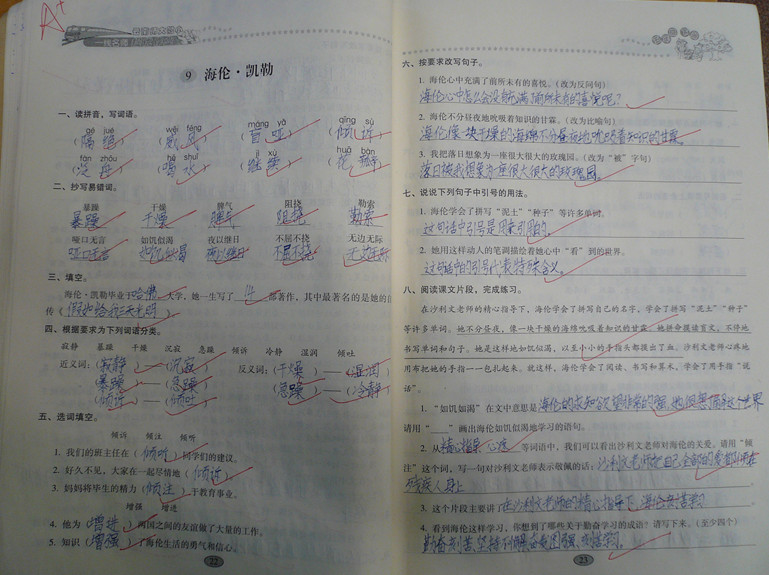 A+
9 海伦·凯勒
一、读拼音，写词语。
gé jué wēi fēng máng yǎ qīng sù
(隔绝) (威风) (盲哑) (倾诉)
hē shuǐ jì xù huā bàn
(喝水) (继续) (花瓣)
二、抄写易错词。
暴躁 干燥 脾气 阻挠 勒索
暴躁 干燥 脾气 阻挠 勒索
哑口无言 如饥似渴 夜以继日 不屈不挠 无边无际
哑口无言 如饥似渴 夜以继日 不屈不挠 无边无际
三、填空。
海伦·凯勒毕业于哈佛大学，她一生写了(14)部著作，其中最著名的是她的自
传《假如给我三天光明》
四、根据要求为下列词语分类。
寂静 暴躁 干燥 沉寂 急躁 倾诉 冷静 湿润 倾吐
近义词：(寂静)——(沉寂) 反义词：(干燥)——(湿润)
(暴躁)——(急躁) (急躁)——(冷静)
(倾诉)——(倾吐)
五、选词填空。
倾诉 倾注 倾听
1. 我们的班主任在(倾听)同学们的建议。
2. 好久不见，大家在一起尽情地(倾诉)。
3. 妈妈将毕生的精力(倾注)于教育事业。
增强 增进
4. 他为(增进)两国之间的友谊做了大量的工作。
5. 知识(增强)了海伦生活的勇气和信心。
22
六、按要求改写句子。
1. 海伦心中充满了前所未有的喜悦。(改为反问句)
海伦心中怎么会没有充满前所未有的喜悦呢？
2. 海伦不分昼夜地吮吸着知识的甘霖。(改为比喻句)
海伦像一块干燥的海绵不分昼夜地吮吸着知识的甘霖。
3. 我把落日想象为一座很大很大的玫瑰园。(改为“被”字句)
落日被我想象为一座很大很大的玫瑰园。
七、说说下列句子中引号的用法。
1. 海伦学会了拼写“泥土”“种子”等许多单词。
这句话中引号是用来引用的。
2. 她用这样动人的笔调描绘着她心中“看”到的世界。
这句话中的引号代表特殊含义。
八、阅读课文片段，完成练习。
在沙利文老师的精心指导下，海伦学会了拼写自己的名字，学会了拼写“泥土”“种子”
等许多单词。她不分昼夜，像一块干燥的海绵吮吸着知识的甘霖。她拼命摸读盲文，不停地
书写单词和句子。她是这样地如饥似渴，以至小小的手指头都摸出了血。沙利文老师心疼地
用布把她的手指一一包扎起来。就这样，海伦学会了阅读、书写和算术，学会了用手指“说
话”。
1. “如饥如渴”在文中意思是海伦的求知欲望非常的强
请用“____”画出海伦如饥似渴地学习的语句。
2. 从精心指导 心疼等词语中，我们可以看出沙利文老师对海伦的关爱。请用“倾
注”这个词，写一句对沙利文老师表示敬佩的话：沙利文老师把自己全部的爱都倾注在
残疾人身上
3. 这个片段主要讲了在沙利文老师的精心指导下，海伦刻苦学习
4. 看到海伦这样学习，你想到了哪些关于勤奋学习的成语？请写下来。(至少四个)
勤奋刻苦 坚持不懈 奋发图强 刻苦学习。
23